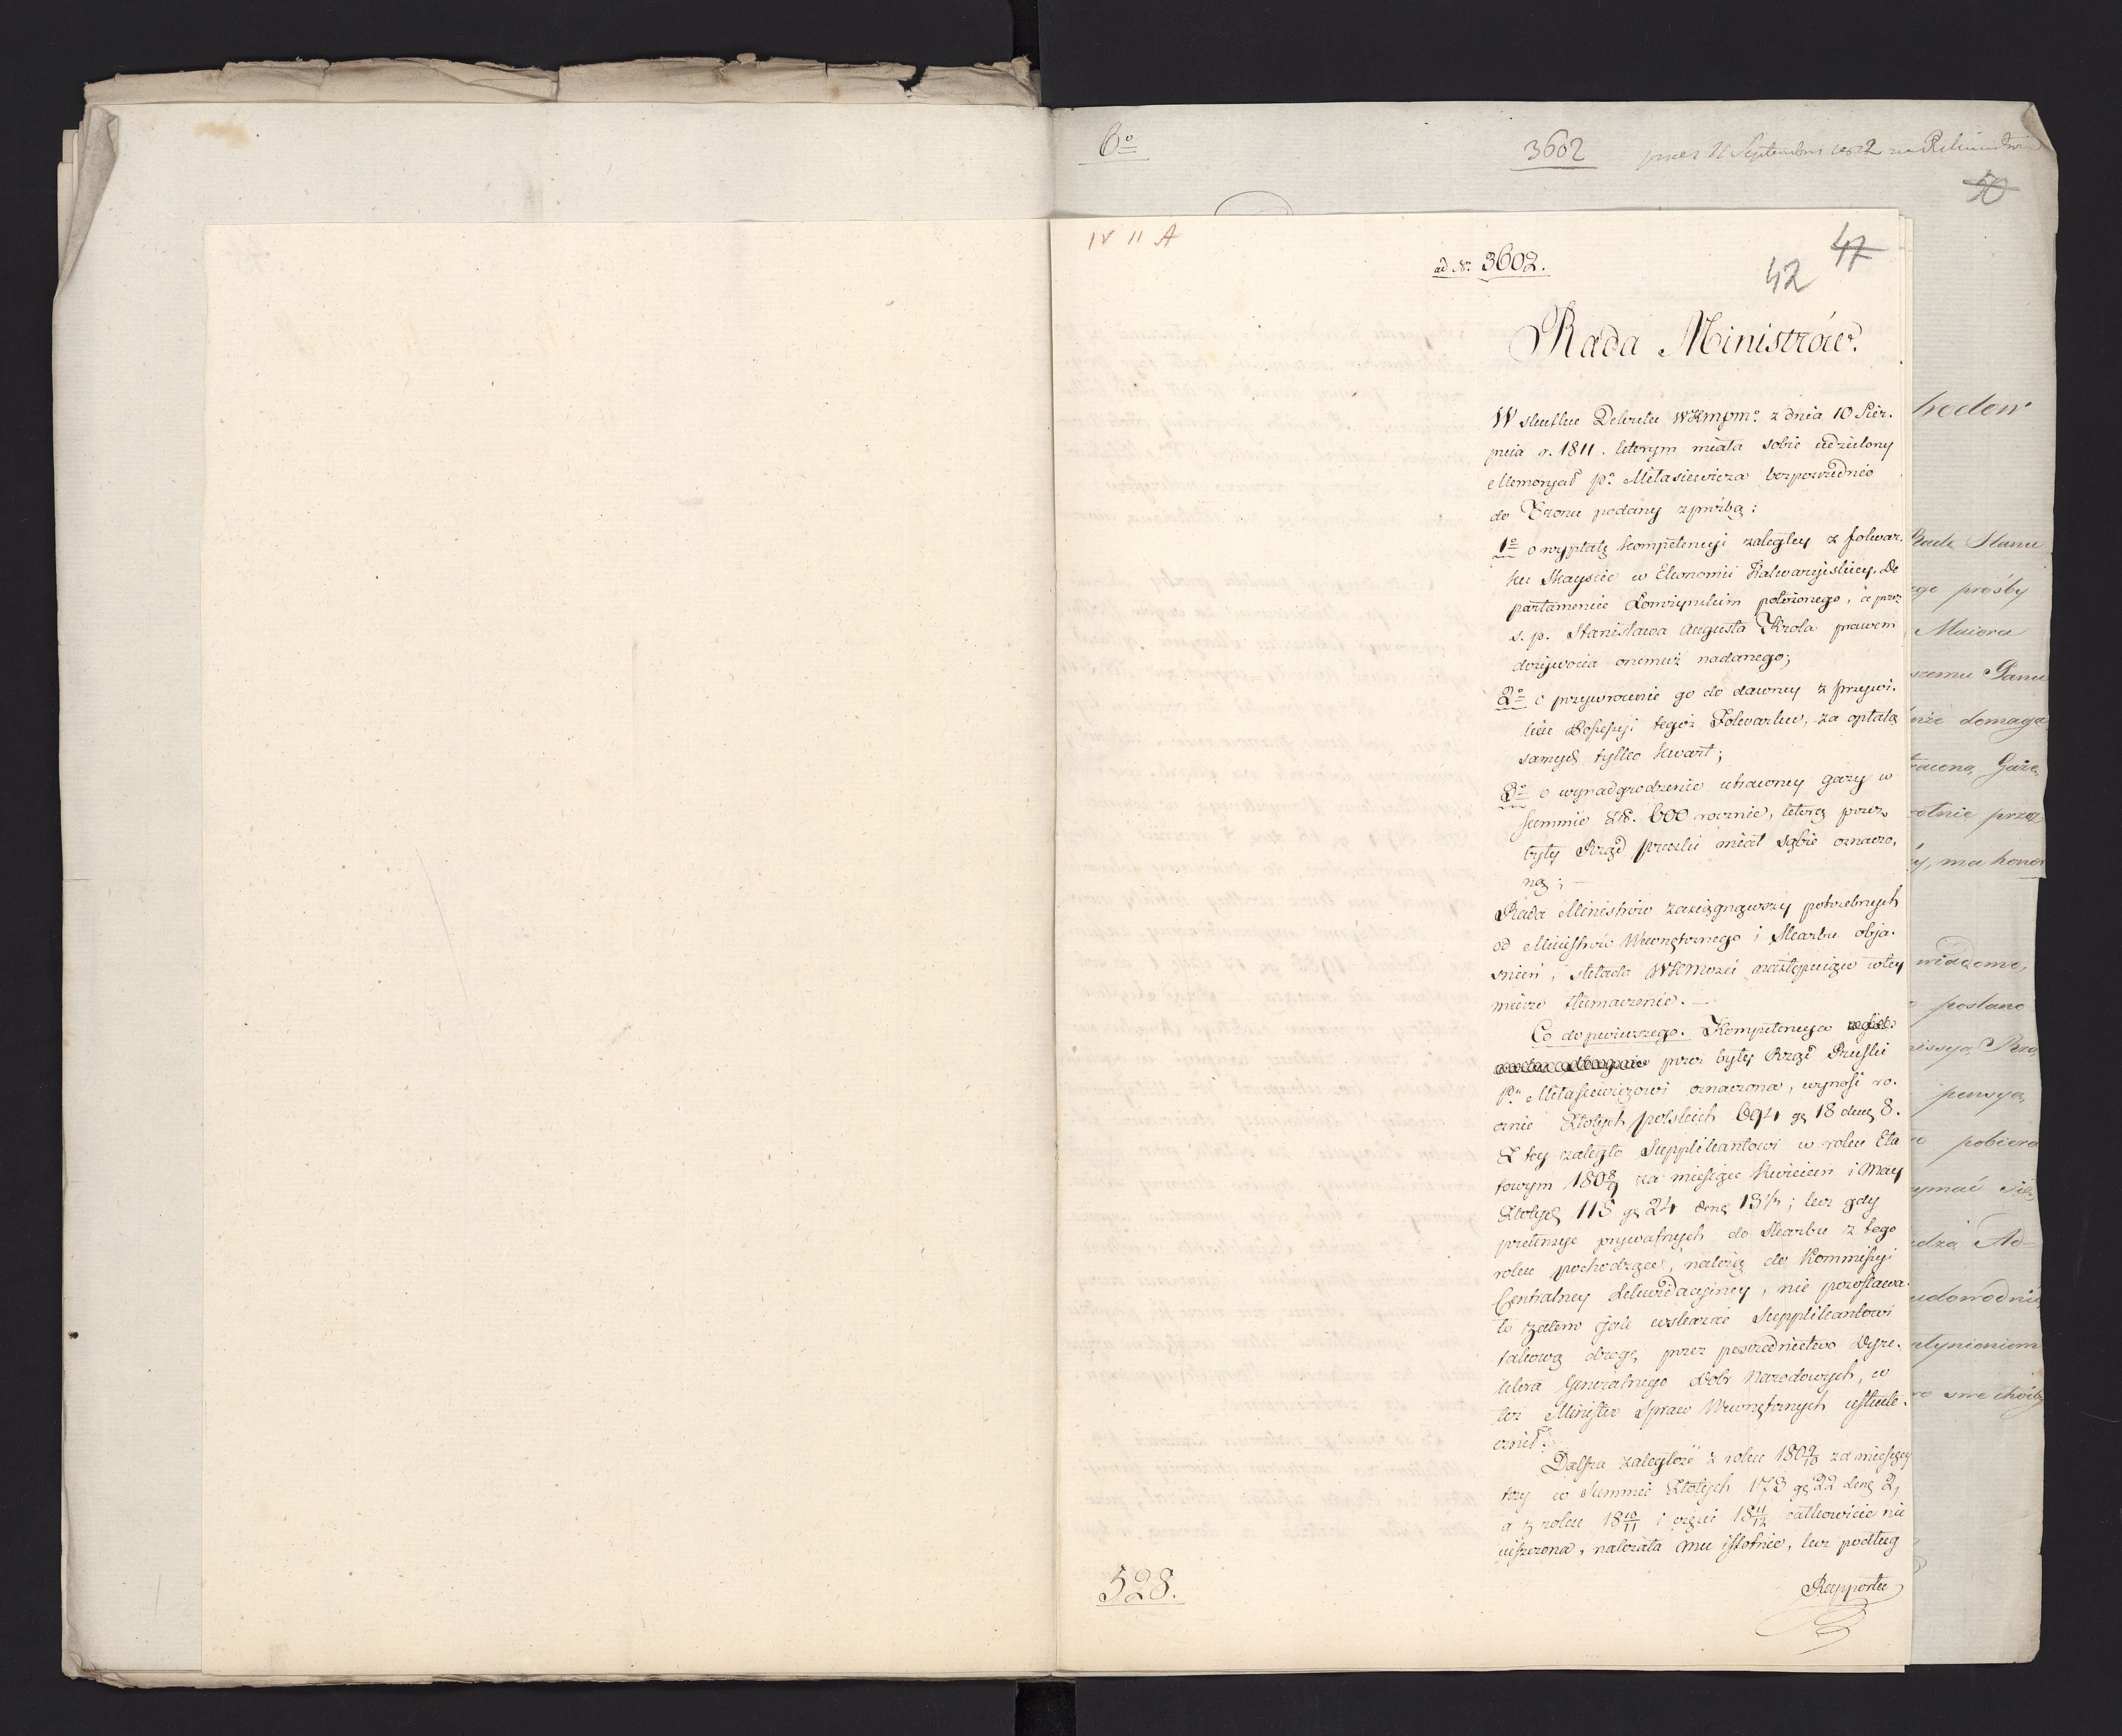 6o
3602
50
IV II A
ad No 3602.
47
42
Rada Ministrów.
W skutku Dekretu WKMpmo z dnia 10 Sier-
pnia r. 1811. którym miała sobie udzielony
Memoryał Pa Milasiewicza bezpośrednio
do Tronu podany z prośbą:
1o o wypłatę kompetencyi zaległey z folwar-
ku Skayście w Ekonomii Kalwaryiskiey, De
partamencie Łomżyńskim położonego, a przez
s. p. Stanisława Augusta Króla prawem
dożywocia onemuż nadanego;
2o o przywrócenie go do dawney z przywi-
leiu Possessyi tegoż Folwarku, za opłatą
samych tylko kwart;
3o o wynadgrodzenie utraconey gaży w
summie Zł. 600 rocznie, którą przez
były Rząd pruski miał sobie oznaczo-
ną; —
Rada Ministrów zaciągnąwszy potrzebnych
od Ministrów Wewnętrznego i Skarbu obja-
śnień, składa WKMości następuiące w tey
mierze tłumaczenie. —
Co do pierwszego. Kompetencya
przez były Rząd Pruski
Pu Milasiewiczowi oznaczona, wynosi ro-
cznie Złotych polskich 694 gr 18 den 8.
Z tey zaległo Supplikantowi w roku Eta
towym 1808/9 za miesiące Kwiecień i May
Złotych 115 gr 24 den 13 1/3; lecz gdy
pretensye prywatnych do Skarbu z tego
roku pochodzące, należą do Kommissyi
Centralney Likwidacyiney, nie pozostawa-
ło zatem jak wskazać Supplikantowi
takową drogę, przez pośrednictwo Dyre-
ktora Generalnego Dóbr Narodowych, co
też Minister Spraw Wewnętrznych uskute-
cznił.
Dalsza zaległość z roku 1809/10 za miesięcy
trzy w Summie Złotych 173 gr 22 den 2,
a z roku 18 10/11 i części 18 11/12 całkowicie nie
uiszczona, należała mu istotnie, lecz podług
Rapportu
528.
Radę Stanu
prośby
Maiora
Panu
domaga
Gażę
przez
ma honor
wiadomo,
postano
pensyą
pobiera